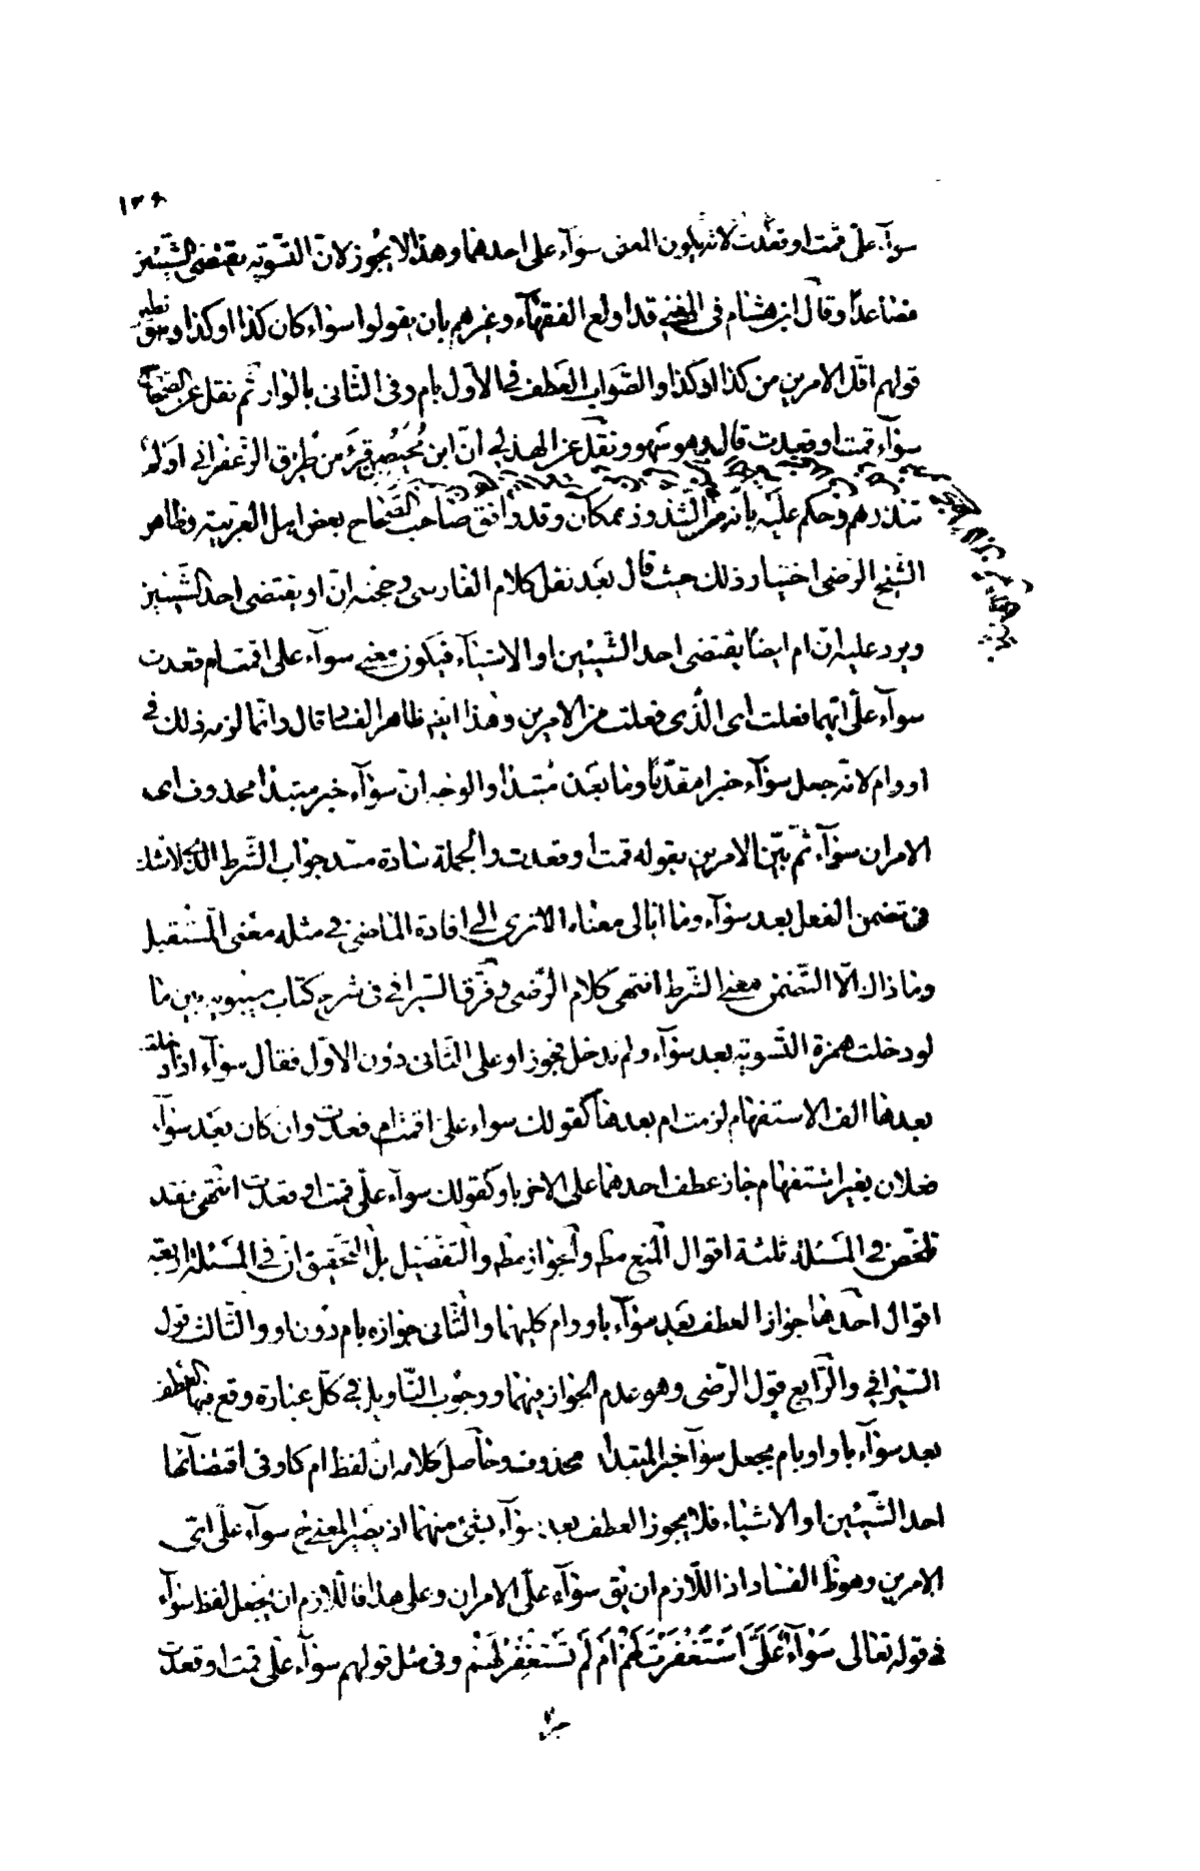 ١٣٨
سوآء علىّ قمت او قعدت لانه يكون المعنى سوآء على احدهما وهذا لا يجوز لانّ التسويه يقتضى الشيئين
فصاعداً وقال ابن هشام فى المغنى قد اولع الفقهآء وغيرهم بان يقولوا سواء كان كذا او كذا وهو نظير
قولهم اقل الامرين من كذا او كذا والصّواب العطف فى الاوّل بام وفى الثّانى بالواو ثم نقل عن الصحاح
سوآء قمت او قعدت قال وهو سهو ونقل عن الهذلى انّ ابن مُحَيصِن قرَءَ من طرق الزعفرانى او لم
تنذرهم وحكم عليه بانّه من الشّذوذ بمكان وقد وافق صاحب الصّحاح بعض اهل العربية وظاهر
الشيخ الرضى اختيار ذلك حيث قال بعَد نقل كلام الفارسى وحجّته انّ او يقتضى احد الشيئين
ويرد عليه انّ ام ايضاً يقتضى احد الشيئين او الاشيآء فيكون معنى سوآء على اقمت ام قعدت
سوآء علىّ ايّهما فعلت اى الّذى فعلت من الامرين وهذا ايضا ظاهر الفساد قال وانّما لزمه ذلك فى
او وام لانّه جعل سوآء خبرا مقدّماً وما بعَده مُبتدأ والوجه انّ سوآء خبر مبتدا محذوف اى
الامران سوآء ثمّ بيّن الامرين بقوله قمت او قعدت والجملة سادة مسد جواب الشّرط الّذى لا شك
فى تضمن الفعل بعد سوآء وما ابالى معناه الا ترى الى افادة الماضى فى مثله معنى المستقبل
وما ذاك الّا التّضمن معنى الشّرط انتهى كلام الرّضى وفرّق السّيرافى فى شرح كتاب سيبويه بين ما
لو دخلت همزة التّسويه بعد سوآء ولم تدخل فجوز او على الثّانى دون الاوّل فقال سوآء اذا دخلت
بعدها الف الاستفهام لزمت ام بعدها كقولك سواء علىّ اقمت ام قعدت وان كان بعَد سوآء
فعلان بغير استفهام جاز عطف احدهما على الاخر باو كقولك سوآء علىّ قمت او قعدت انتهى فقد
تلخّص فى المسئلة ثلثة اقوال المنع مط والجواز مط والتفصيل بل التحقيق انّ فى المسئلة اربعة
اقوال احدها جواز العطف بعَد سوآء باو وام كليهما والثّانى جوازه بام دون او والثّالث قول
السّيرافى والرّابع قول الرّضى وهو عدم الجواز فيهما ووجوب التّاويل فى كلّ عبارة وقع فيها العطف
بعد سوآء باو او بام بجعل سوآ خبر المبتدأ محذوف وحاصل كلامه انّ لفظ ام كاو فى اقتضآئها
احد الشّيئين او الاشياء فلا يجوز العطف بعد سوآء بشئ منهما اذ يصير المعنى ح سوآء علىّ اىّ
الامرين وهو ظ الفساد اذ اللّازم ان يق سوآء علىّ الامران وعلى هذا فاللّازم ان يجعل لفظ سوآء
فى قوله تعالى سَوَآءٌ عَلَىَّ اَسْتَغْفَرْتَ لَهُمْ اَمْ لَمْ تَسْتَغْفِرْ لَهُمْ وفى مثل قولهم سوآء علىّ قمت او قعدت
خبر